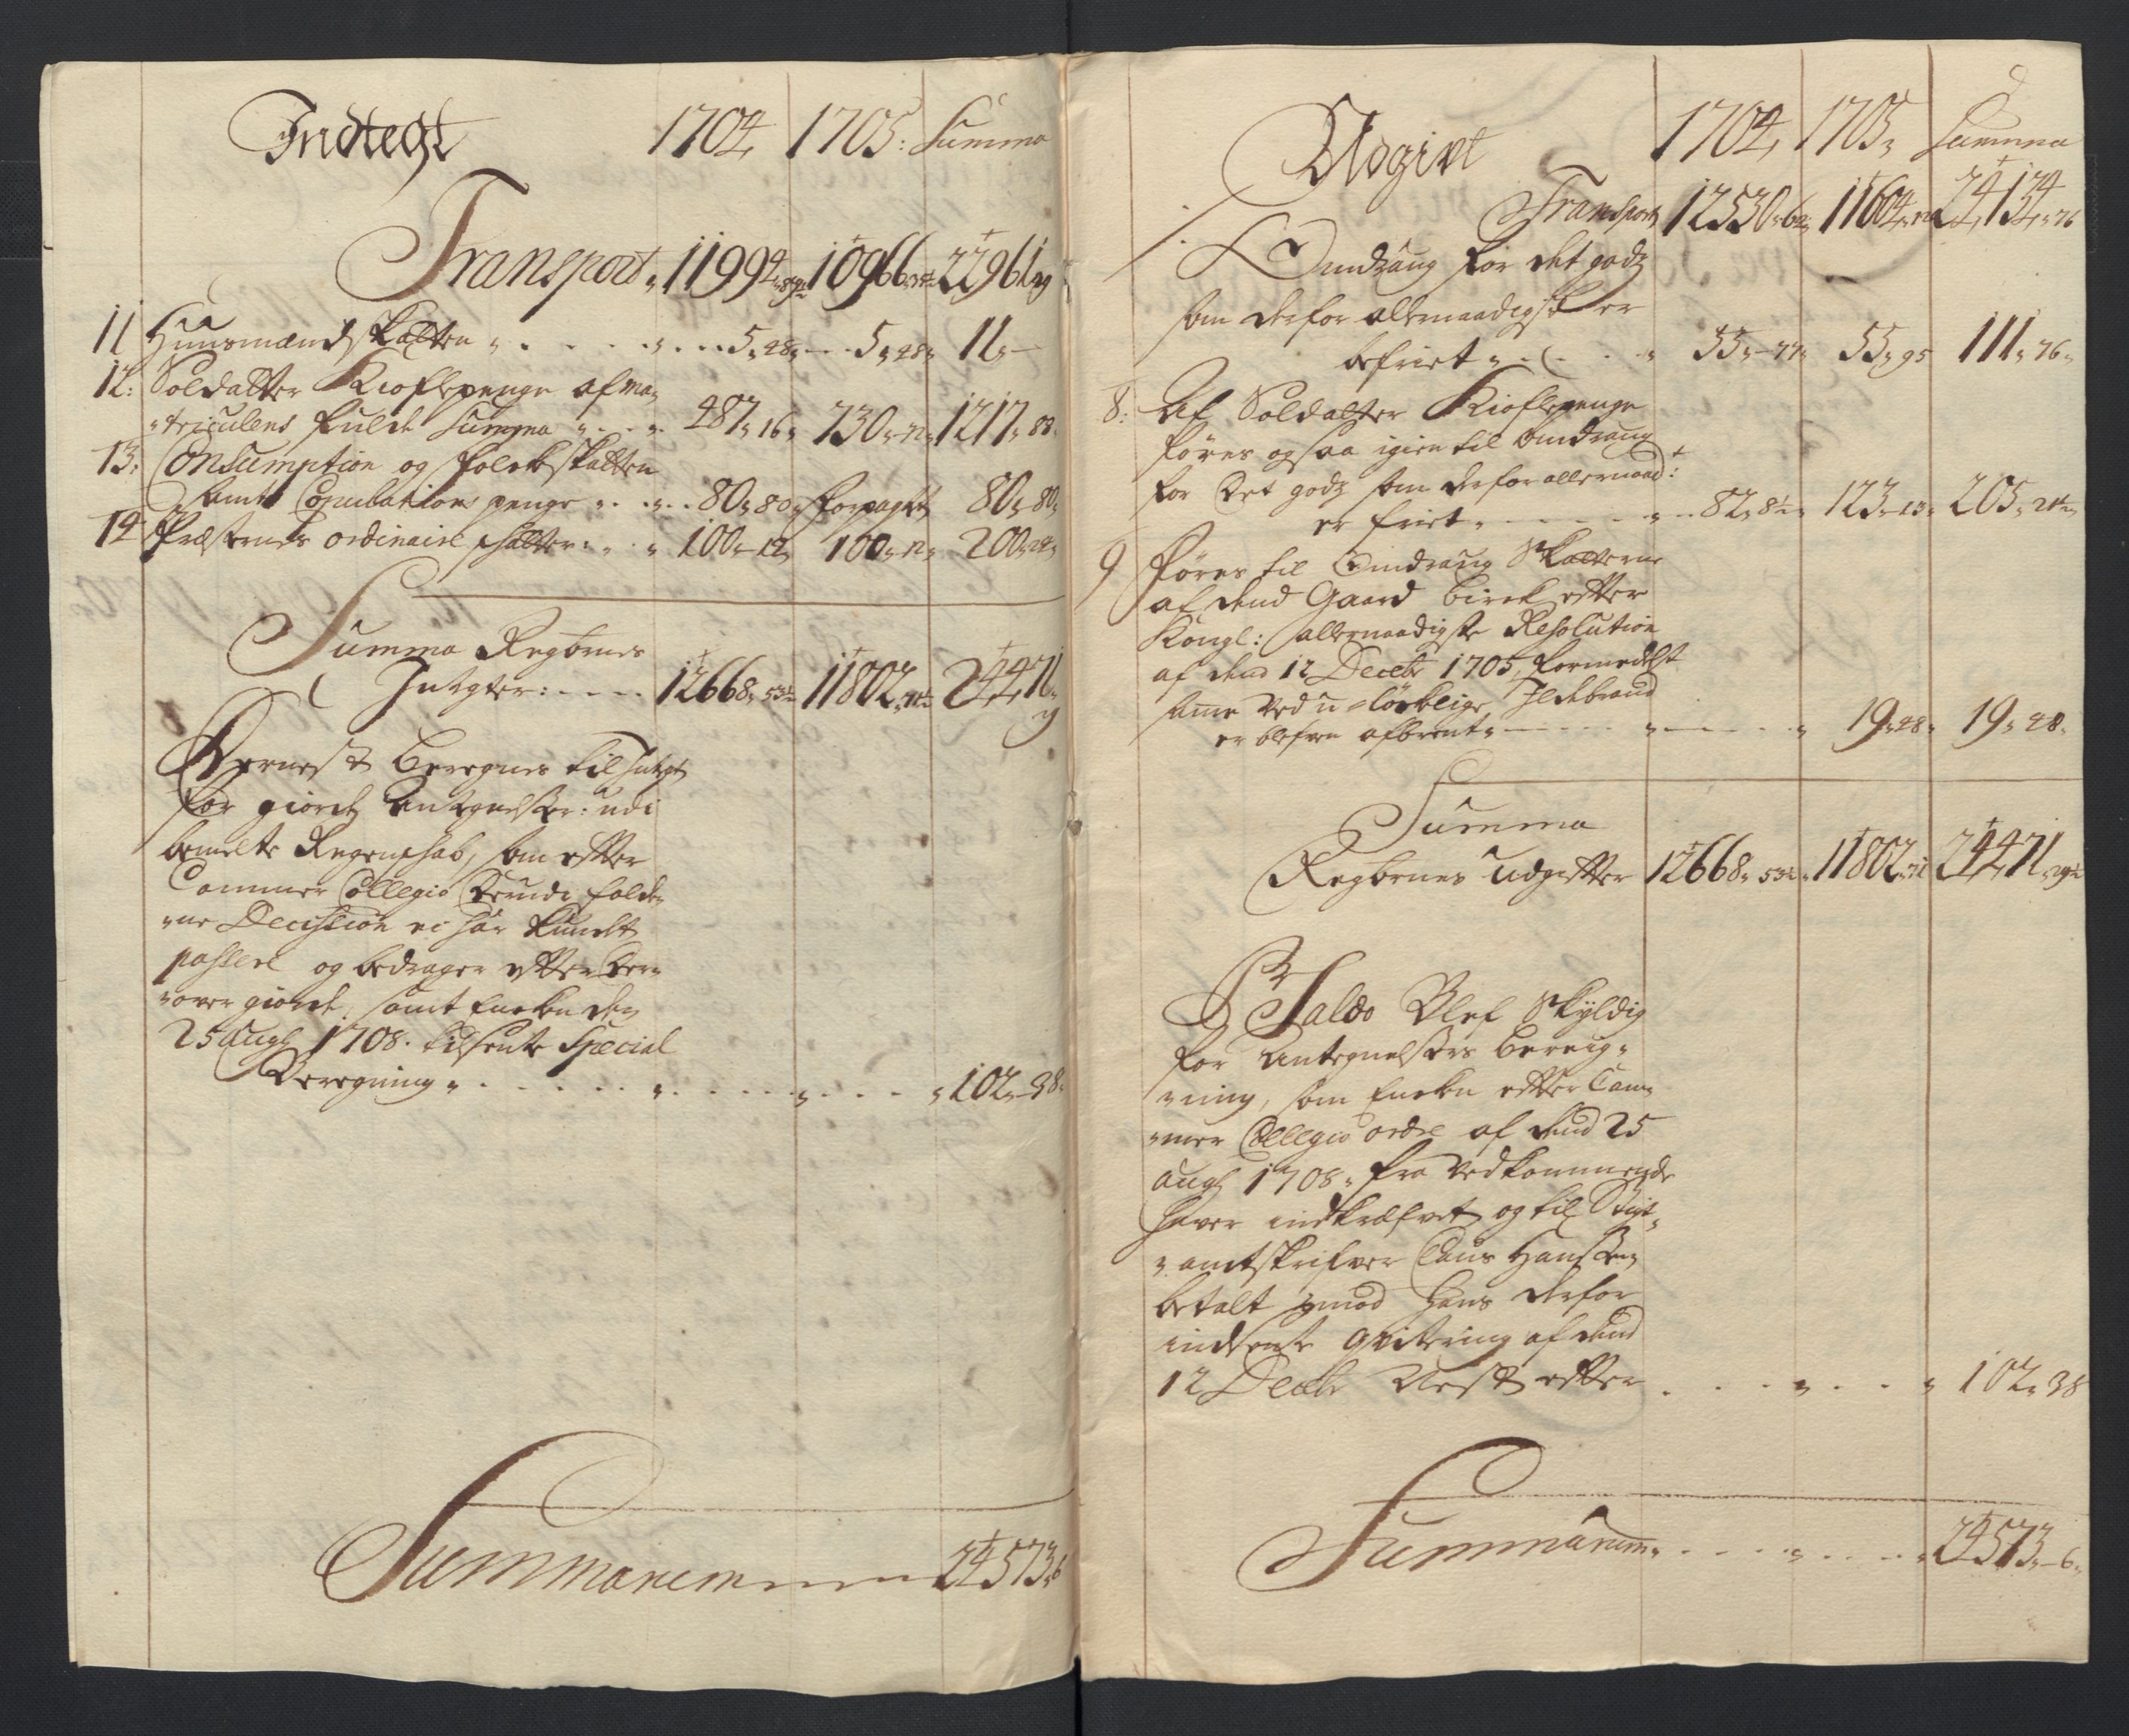 Indtegt 1704, 1705: Summa
Transport 11994 10966 22961
11 Huusmænd skatten 5„48„ 5„48„ 11„
12: Soldatter Kioflepenge af ma„
„triculens fulde Summa 487„16„ 730„72„ 1217„88„
13: Consumption og folckskatten
samt Copulations penge 80„80„ forpagtt 80„80„
14 Præsternes ordinaire schatter 100„12„ 100„12„ 200„24„
Summa Regbenes
Indtgter: 12668„53½ 11802„71½ 24471„
Dernest beregnes til Indtgt
for giorde Antegnelser: udi
bemelte Regenschab, som efter
Cammer Collegio derudi falde„
„ne Decission ei har kundt
passere og bedrager efter der„
„over giorde, samt den
25 Augs 1708. tilsente Special
Beregning 102„38„
Summarum 24573„6
Udgivt 1704, 1705„ Summa
Transport 12530„62„ 11604„ 24134„76
Omdraug for det godz
som derfor allernaadigst er
befriet 55„77„ 55„95 111„76„
8: Af Soldatter Kioflepenge
føres ogsaa igien til omdraug
for det godz som derfor allernaad:
er friet 82„8½„ 123„13„ 205„21½„
9 føres til Omdraug Skatterne
af dend Gaard Birck efter
Kongl: allernaadigste Resolution
af dend 12 Decebr 1705, formedelst
samme ved u-løckelige Ildebrand
er blefven afbrent 19„48„ 19„48„
Summa
Regbenes Udgifter 12668„53½„ 11802„71 24471„29½
Pr Saldo Blef Skyldig
for Antegnelsers bereig„
„ning, som efter Cam„
„mer Collegio ordre af dend 25
Augs 1708„ fra vedkommende
haver indkræfvet og til Stigt„
„amtskrifver Claus Hanssen
betalt imod hans derfor
indsente qvitering af dend
12 Decebr Nest efter 102„38
Summarum 24573„6„